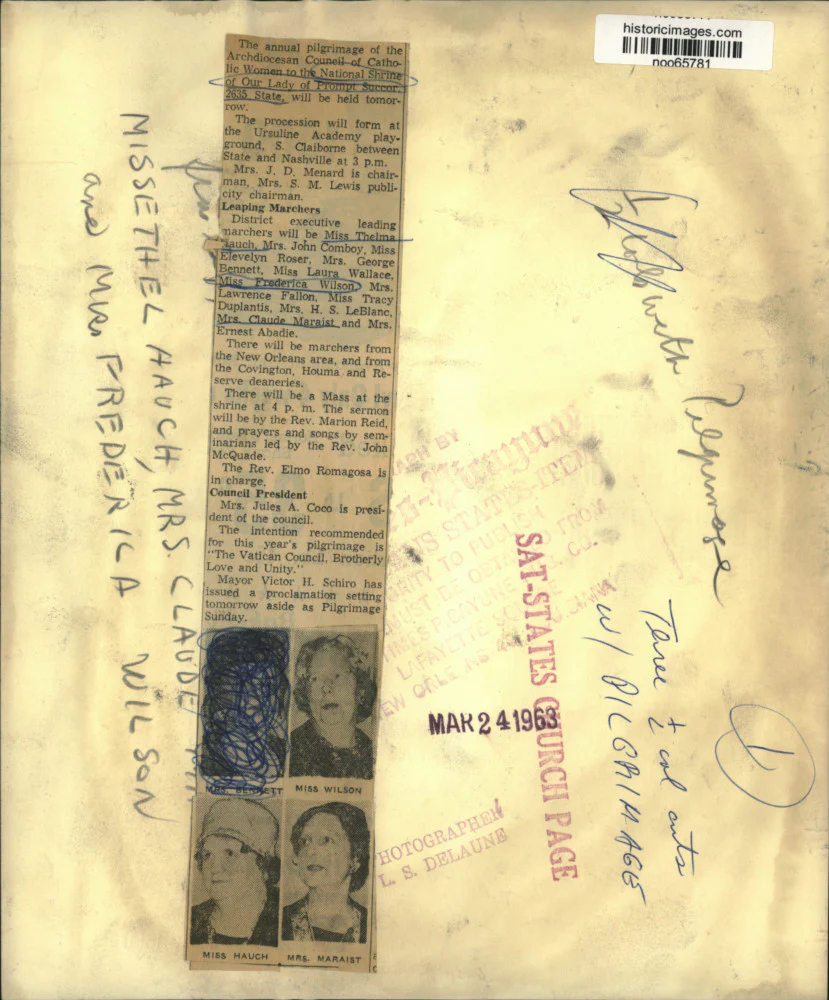 historicimages.com
noo65781
The annual pilgrimage of the
Archdiocesan Council of Catho-
lic Women to the National Shrine
of Our Lady of Prompt Succor,
2635 State, will be held tomor-
row.
The procession will form at
the Ursuline Academy play-
ground, S. Claiborne between
State and Nashville at 3 p.m.
Mrs. J. D. Menard is chair-
man, Mrs. S. M. Lewis publi-
city chairman.
Leaping Marchers
District executive leading
marchers will be Miss Thelma
Hauch, Mrs. John Comboy, Miss
Elevelyn Roser, Mrs. George
Bennett, Miss Laura Wallace,
Miss Frederica Wilson, Mrs.
Lawrence Fallon, Miss Tracy
Duplantis, Mrs. H. S. LeBlanc,
Mrs. Claude Maraist and Mrs.
Ernest Abadie.
There will be marchers from
the New Orleans area, and from
the Covington, Houma and Re-
serve deaneries.
There will be a Mass at the
shrine at 4 p. m. The sermon
will be by the Rev. Marion Reid,
and prayers and songs by sem-
inarians led by the Rev. John
McQuade.
The Rev. Elmo Romagosa is
in charge.
Council President
Mrs. Jules A. Coco is presi-
dent of the council.
The intention recommended
for this year's pilgrimage is
"The Vatican Council, Brotherly
Love and Unity."
Mayor Victor H. Schiro has
issued a proclamation setting
tomorrow aside as Pilgrimage
Sunday.
MRS. BENNETT MISS WILSON
MISS HAUCH MRS. MARAIST
MISS ETHEL HAUCH, MRS. CLAUDE
and Miss FREDERICA WILSON
SAT-STATES CHURCH PAGE
MAR 24 1963
PHOTOGRAPHER
L. S. DELAUNE
with Pilgrimage
w/ PILGRIMAGE
1